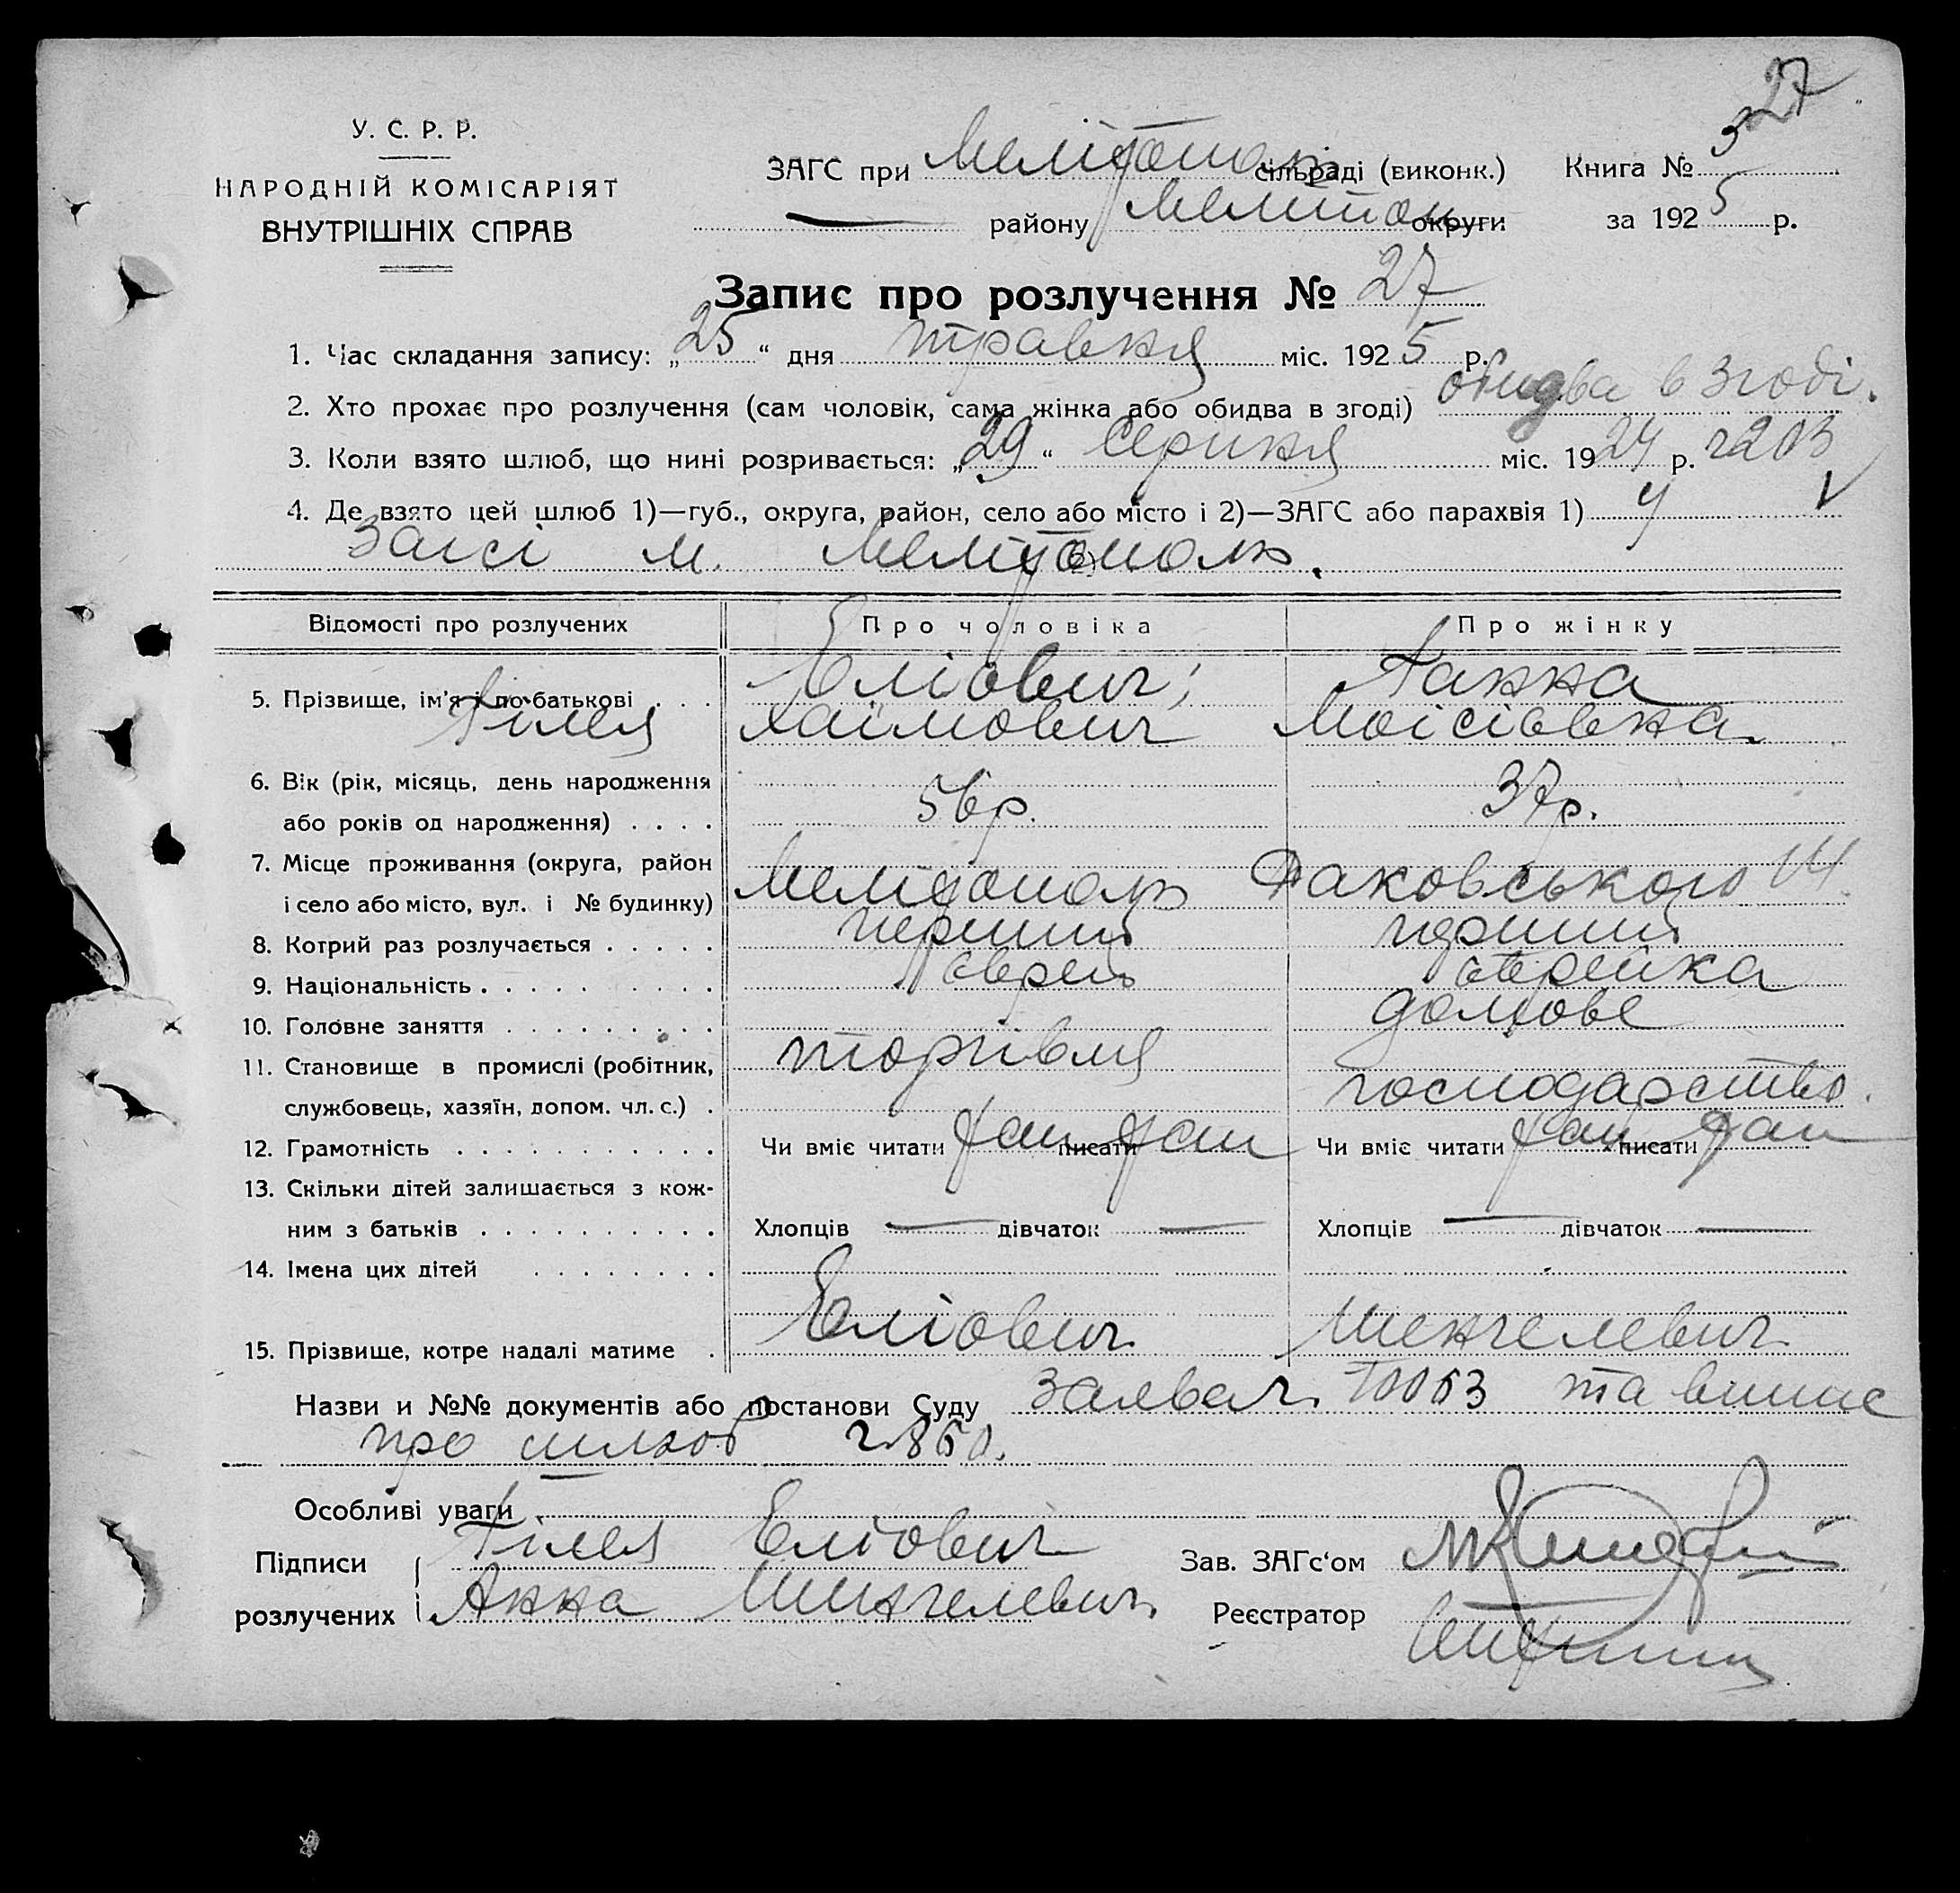 27
У. С. Р. Р.
НАРОДНІЙ КОМІСАРІЯТ
ВНУТРІШНІХ СПРАВ
ЗАГС при Мелітополь сільраді (виконк.) Книга № 3
— району Мелитоп округи за 1925 р.
Запис про розлучення № 27
1. Час складання запису: „25“ дня травня міс. 1925 р.
2. Хто прохає про розлучення (сам чоловік, сама жінка або обидва в згоді) обидва в згоді.
3. Коли взято шлюб, що нині розривається: „29“ Серпня міс. 1924 р. ч203
4. Де взято цей шлюб 1)—губ., округа, район, село або місто і 2)—ЗАГС або парахвія 1) у
Загсі м. Мелітополь.
Відомості про розлучених Про чоловіка Про жінку
5. Прізвище, ім'я і по-батькові . . . Еліович; Ганна
Гілея Хаімович Моісіівна
6. Вік (рік, місяць, день народження
або років од народження) . . . . 56 р. 37 р.
7. Місце проживання (округа, район
і село або місто, вул. і № будинку) Мелітополь Раковського 14
8. Котрий раз розлучається . . . . . перший перший
9. Національність . . . . . . . . . єврей єврейка
10. Головне заняття . . . . . . . . . домове
11. Становище в промислі (робітник, торгівля
службовець, хазяїн, допом. чл. с.) . господарство.
12. Грамотність . . . . . . . . . . . Чи вміє читати так писати так Чи вміє читати так писати так
13. Скільки дітей залишається з кож-
ним з батьків . . . . . . . . . . Хлопців — дівчаток — Хлопців — дівчаток —
14. Імена цих дітей . . . . . . . .
15. Прізвище, котре надалі матиме . Еліович Шенгелевич
Назви и №№ документів або постанови Суду Заява ч. 10063 та випис
про шлюб ч. 860.
Особливі уваги
Підписи Гілея Еліович Зав. ЗАГс'ом
розлучених Анна Шингелевич Реєстратор